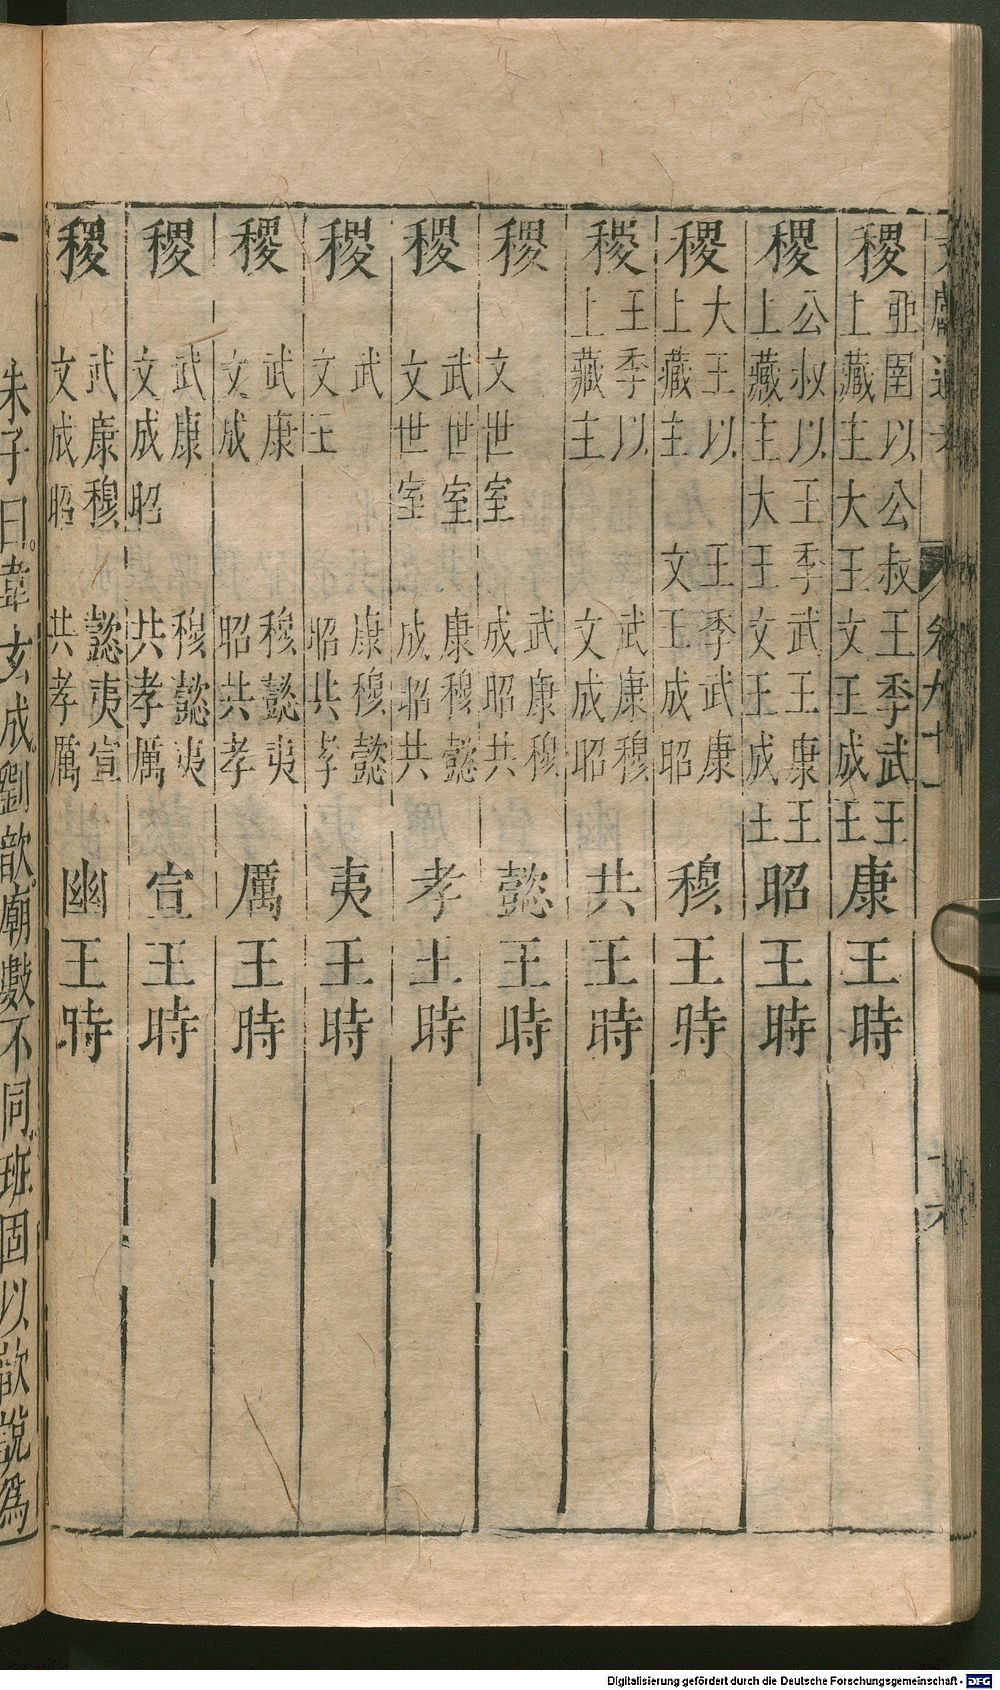 文獻通考 卷九十一
稷亞圉以上藏主公叔大王王季武王文王成王康王時
稷公叔以上藏主王季大王武王康王文王成王昭王時
稷大王以上藏主王季武康文王成昭穆王時
稷王季以上藏主武康穆文成昭共王時
稷文世室武康穆成昭共懿王時
稷武世室文世室康穆懿成昭共孝王時
稷武文王康穆懿昭共孝夷王時
稷武康文成穆懿夷昭共孝厲王時
稷武康文成昭穆懿夷共孝厲宣王時
稷武康穆文成昭懿夷宣共孝厲幽王時
朱子曰。韋玄成。劉歆。廟數不同。班固以歆說爲
Digitalisierung gefördert durch die Deutsche Forschungsgemeinschaft - DFG